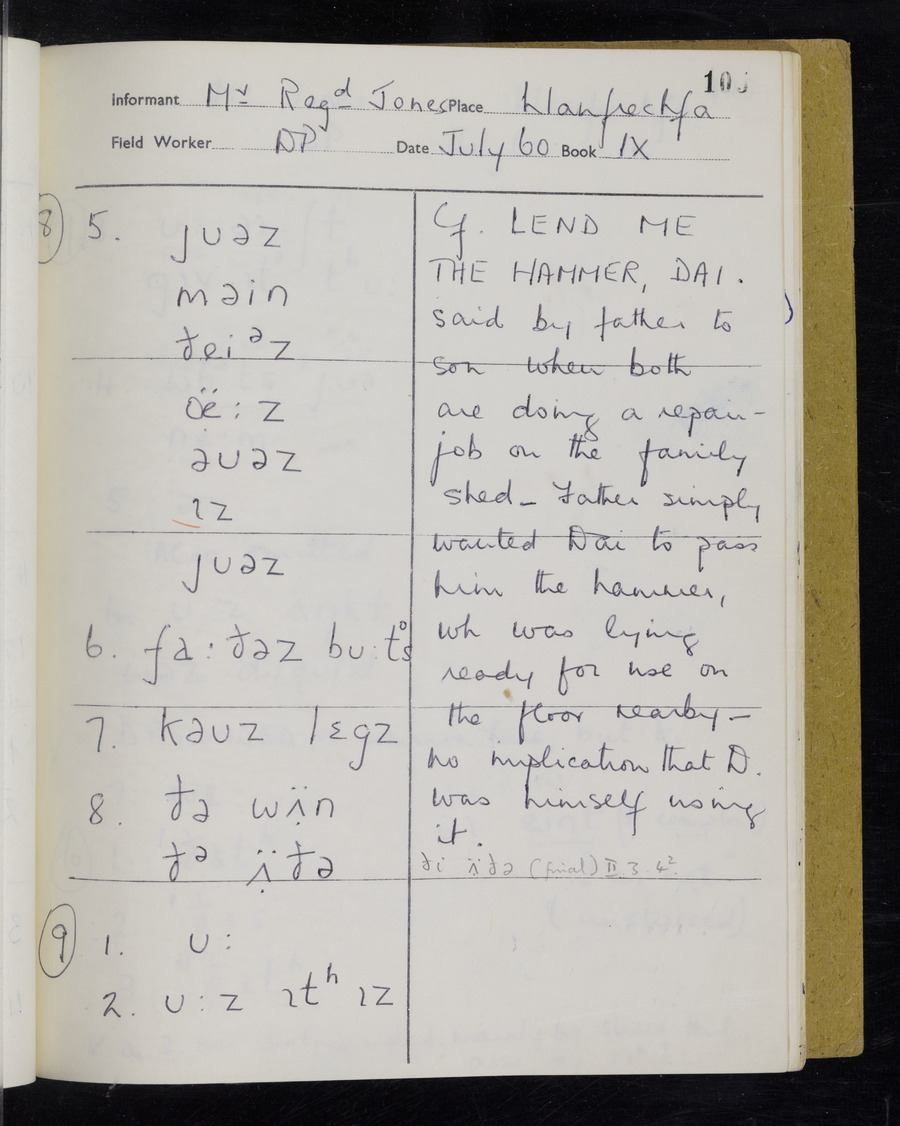 Informant Mr Regd Jones Place Llanfrechfa
Field Worker DP Date July 60 Book IX
8
5. juəz
məin
ðeiəz
öë:z
əuəz
ɪz
juəz
6. fa:ðəz bu:ts
7. kəuz lɛgz
8. ðə wʌ̈n
ðə ʌ̈ðə
9
1. u:
2. u:z ɪtʰ ɪz
Cf. LEND ME
THE HAMMER, DAI.
said by father to
son when both
are doing a repair-
job on the family
shed - Father simply
wanted Dai to pass
him the hammer,
wh was lying
ready for use on
the floor nearby -
no implication that D.
was himself using
it.
ði ʌ̈ðə (final) II 3.4²